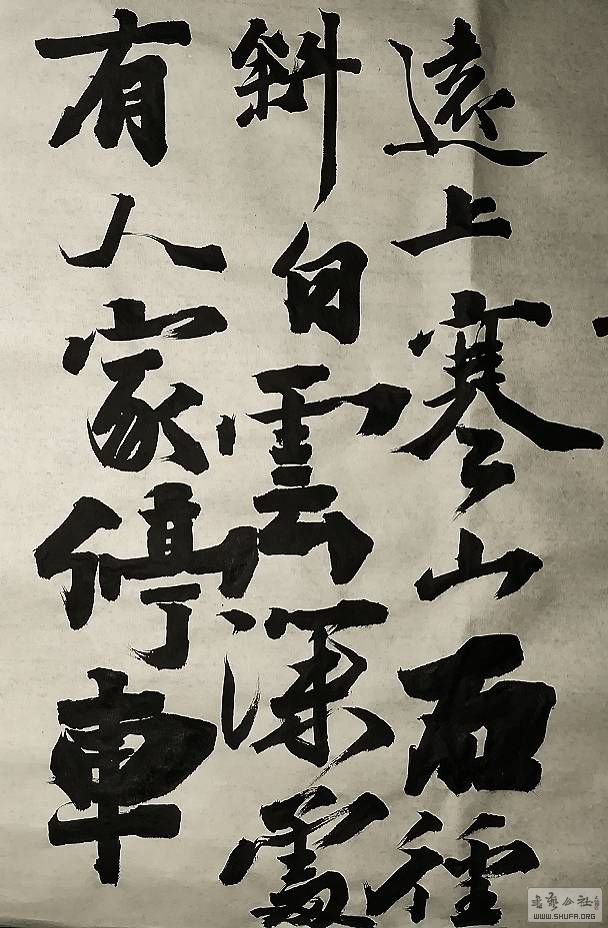 遠上寒山石徑
斜白雲深處
有人家停車
书艺公社
WWW.SHUFA.ORG